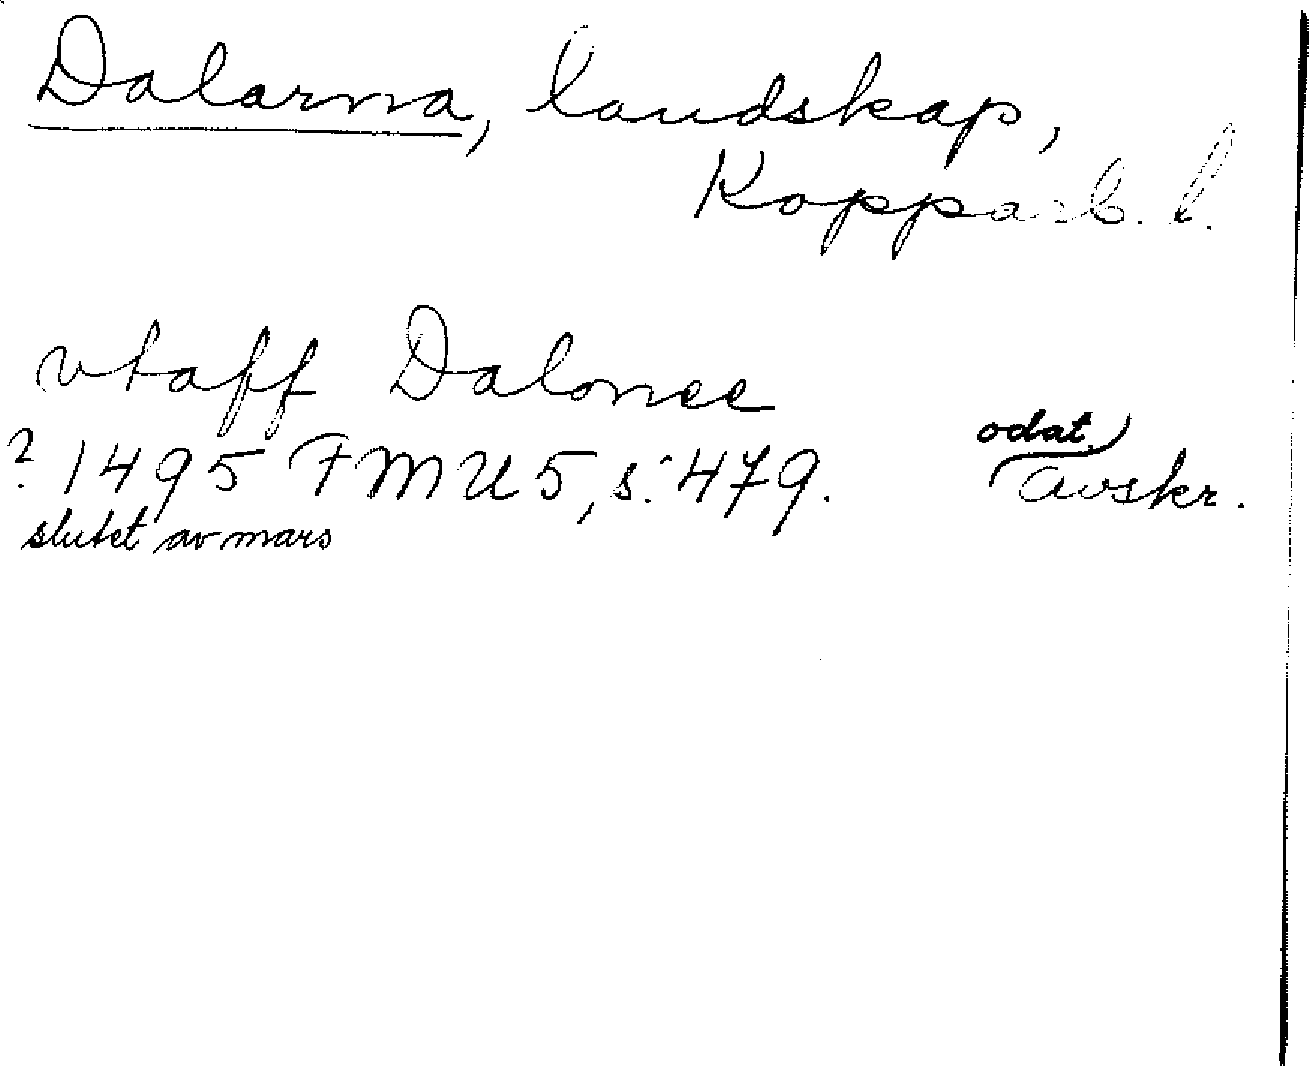 Dalarna, landskap,
Kopparb. l.
vtaff Dalonee
? 1495 FMU 5, s. 479. odat. avskr.
slutet av mars